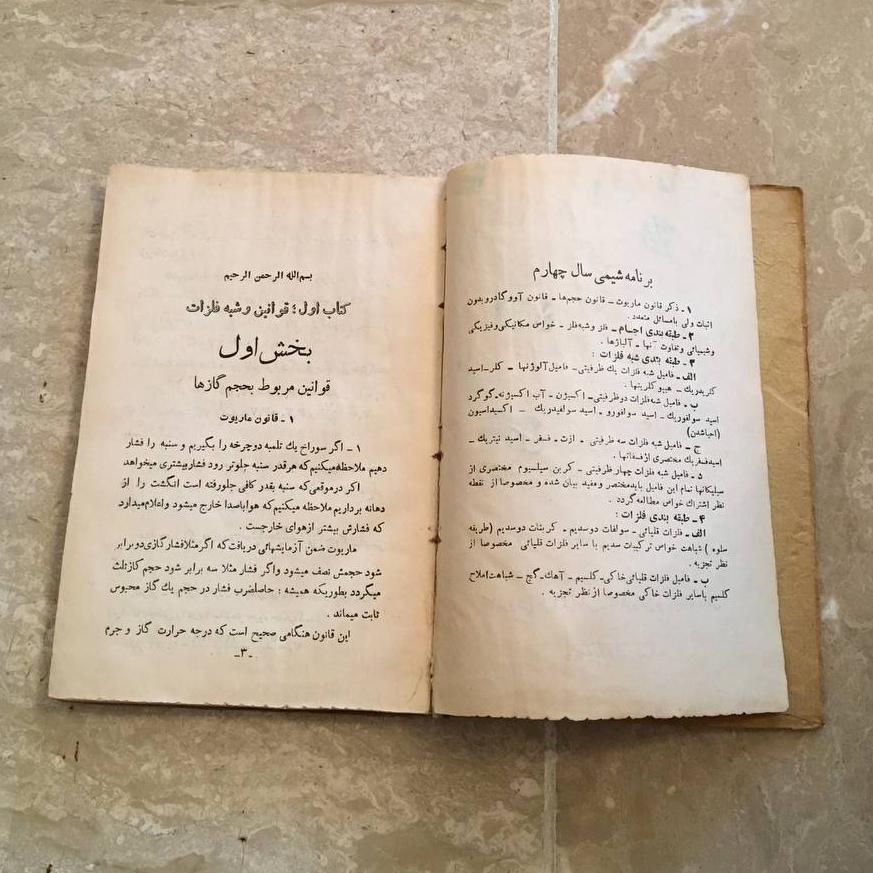 برنامه شیمی سال چهارم
۱ ـ ذکر قانون ماریوت ـ قانون حجم‌ها ـ قانون آووگادرو بدون
اثبات ولی بامسائل متعدد .
۲ ـ طبقه بندی اجسام ـ فلز وشبه‌فلز ـ خواص مکانیکی وفیزیکی
وشیمیائی وتفاوت آنها ـ آلیاژها .
۳ ـ طبقه بندی شبه فلزات :
الف ـ فامیل شبه فلزات یك ظرفیتی ـ فامیل آلوژنها ـ کلر ـ اسید
کلریدریك ـ هیپوکلریتها .
ب ـ فامیل شبه‌فلزات دوظرفیتی ـ اکسیژن ـ آب اکسیژنه ـ گوگرد
اسید سولفوریك ـ اسید سولفورو ـ اسید سولفیدریك ـ اکسیداسیون
(احیاشدن)
ج ـ فامیل شبه فلزات سه ظرفیتی ـ ازت ـ فسفر ـ اسید نیتریك ـ
اسیدفسفریك مختصری ازفسفاتها .
د ـ فامیل شبه فلزات چهار ظرفیتی ـ کربن سیلسیوم مختصری از
سیلیکاتها تمام این فامیل باید مختصر ومفید بیان شده و مخصوصا از نقطه
نظر اشتراك خواص مطالعه گردد .
۴ ـ طبقه بندی فلزات :
الف ـ فلزات قلیائی ـ سولفات دوسدیم ـ کربنات دوسدیم (طریقه
سلوه ) شباهت خواص ترکیبات سدیم با سایر فلزات قلیائی مخصوصا از
نظر تجزیه .
ب ـ فامیل فلزات قلیائی خاکی ـ کلسیم ـ آهك ـ گچ ـ شباهت املاح
کلسیم باسایر فلزات خاکی مخصوصا از نظر تجزیه .
بسم‌الله الرحمن الرحیم
کتاب اول : قوانین و شبه فلزات
بخش اول
قوانین مربوط بحجم گازها
۱ ـ قانون ماریوت
۱ ـ اگر سوراخ یك تلمبه دوچرخه را بگیریم و سنبه را فشار
دهیم ملاحظه میکنیم که هرقدر سنبه جلوتر رود فشار بیشتری میخواهد
اکر درموقعی که سنبه بقدر کافی جلورفته است انگشت را از
دهانه برداریم ملاحظه میکنیم که هوا باصدا خارج میشود واعلام میدارد
که فشارش بیشتر ازهوای خارجست .
ماریوت ضمن آزمایشهائی دریافت که اگر مثلا فشار گازی دو برابر
شود حجمش نصف میشود واگر فشار مثلا سه برابر شود حجم کاز ثلث
میگردد بطوریکه همیشه : حاصلضرب فشار در حجم یك گاز محبوس
ثابت میماند .
این قانون هنگامی صحیح است که درجه حرارت گاز و جرم
ـ۳ـ